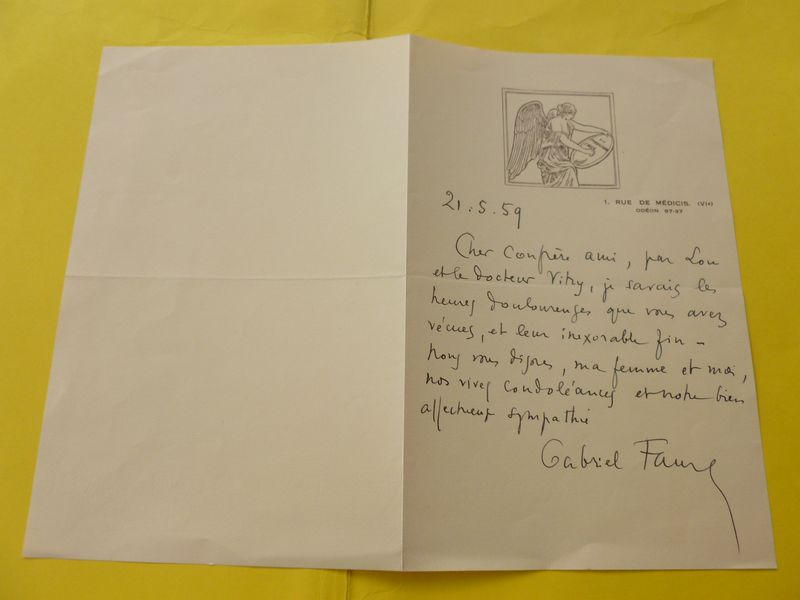 1. RUE DE MÉDICIS. (VIe)
ODÉON 97-37
21.5.59
Cher Confrère ami, par Lou
et le docteur Vitry, je savais les
heures douloureuses que vous avez
vécues, et leur inexorable fin –
Nous vous disons, ma femme et moi,
nos vives condoléances et notre bien
affectueuse sympathie
Gabriel Faure